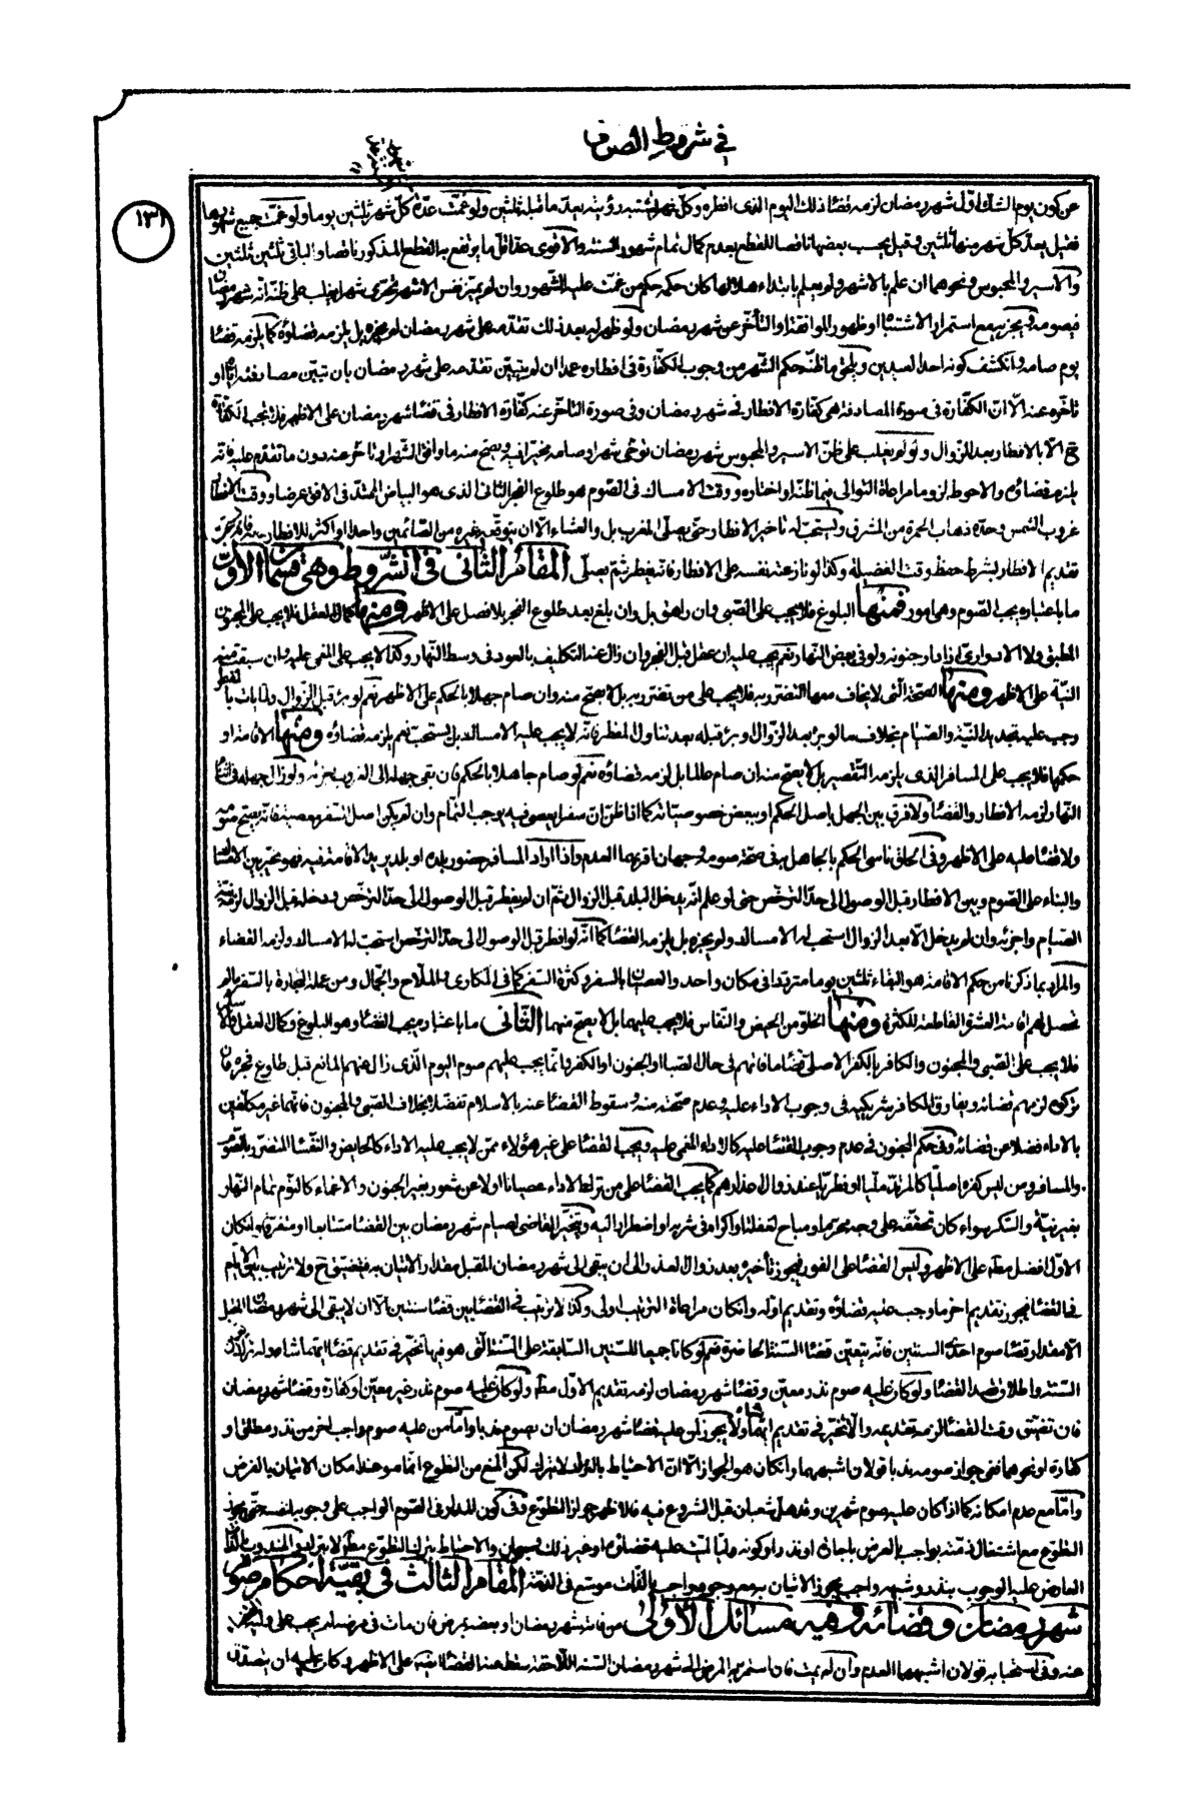 في شروط الصوم
١٣١
عن كون يوم الشك اول شهر رمضان لزمه قضاء ذلك اليوم الذى افطره وكل شهر تشتبه رؤيته يعد ما قبله ثلثين ولو غمت عدة كل شهر ثلثين يوما ولو غمت جميع شهورها
فقيل يعد كل شهر منها ثلثين وقيل يحسب بعضها ناقصا للقطع بعدم كمال تمام شهور السنة والاقوى عد اقل ما يرتفع به القطع المذكور ناقصا والباقى ثلثين ثلثين
والاسير والمحبوس ونحوهما ان علم بالاشهر ولم يعلم بابتداء هلالها كان حكمه حكم من غمت عليه الشهور وان لم يميز نفس الاشهر تحرى شهرا يغلب على ظنه انه شهر رمضان
فيصومه ويجزيه مع استمرار الاشتباه او ظهور الموافقة او التأخر عن شهر رمضان ولو ظهر له بعد ذلك تقدمه على شهر رمضان لم يجزه بل يلزمه قضاؤه كما يلزمه قضاء
يوم صامه وانكشف كونه احد العيدين ويلحق ما ظنه حكم الشهر من وجوب الكفارة في افطاره عمدا ان لم يتبين تقدمه على شهر رمضان بان تبين مصادفته اياه او
تاخره عنه الا ان الكفارة فى صورة المصادفة هى كفارة الافطار فى شهر رمضان وفى صورة التاخر عنه كفارة الافطار فى قضاء شهر رمضان على الاظهر فلا تجب الكفارة
ح الا بالافطار بعد الزوال ولو لم يغلب على ظن الاسير والمحبوس شهر رمضان توخى شهرا وصامه مخيرا فيه ويصح منه ما وافق الشهر او تاخر عنه دون ما تقدم عليه فانه
يلزمه قضاؤه والاحوط لزوما مراعاة التوالى فيما ظنه او اختاره ووقت الامساك فى الصوم هو طلوع الفجر الثانى الذى هو البياض الممتد فى الافق عرضا ووقت الافطار
غروب الشمس وحده ذهاب الحمرة من المشرق ويستحب له تاخير الافطار حتى يصلى المغرب بل والعشاء الا ان يتوقعه غيره من الصائمين واحدا او اكثر للافطار معه
تقديم الافطار بشرط حفظ وقت الفضيلة وكذا لو نازعته نفسه على الافطار فانه يفطر ثم يصلى المقام الثانى فى الشروط وهى قسمان الاول
ما باعتباره يجب الصوم وهى امور فمنها البلوغ فلا يجب على الصبى وان راهق بل وان بلغ بعد طلوع الفجر بلا فصل على الاظهر ومنها كمال العقل فلا يجب على المجنون
المطبق ولا الادوارى اذا دار جنونه ولو فى بعض النهار نعم يجب عليه ان عقل قبل الفجر وان زال عنه التكليف بالعود فى وسط النهار وكذا لا يجب على المغمى عليه وان سبقت منه
النية على الاظهر ومنها الصحة التى لا يخاف معها التضرر به فلا يجب على من تضرر به بل لا يصح منه وان صام جهلا بالحكم على الاظهر نعم لو برء قبل الزوال ولما يات بالمفطر
وجب عليه تجديد النية والصيام بخلاف ما لو برء بعد الزوال او برء قبله بعد تناول المفطر فانه لا يجب عليه الامساك بل يستحب نعم يلزمه قضاؤه ومنها الاقامة او
حكمها فلا يجب على المسافر الذى يلزمه التقصير بل لا يصح منه ان صام عالما بل لزمه قضاؤه نعم لو صام جاهلا بالحكم فان بقى جهله الى الغروب يجزئه ولو زال جهله فى اثناء
النهار لزمه الافطار والقضاء ولا فرق بين الجهل باصل الحكم او ببعض خصوصياته كما اذا ظن ان سفر المعصية يوجب التمام وان لم يكن اصل السفر معصية فانه يصح صومه
ولا قضاء عليه على الاظهر وفى الحاق ناسى الحكم بالجاهل به فى صحة صومه وجهان اقربهما العدم واذا اراد المسافر حضور بلده او بلد يريد الاقامة فيه فهو مخير بين الامساك
والبناء على الصوم وبين الافطار قبل الوصول الى حد الترخص حتى لو علم انه يدخل البلد قبل الزوال ثم ان لم يفطر قبل الوصول الى حد الترخص ودخله قبل الزوال لزمه نية
الصيام واجزئه وان لم يدخل الا بعد الزوال استحب له الامساك ولم يجزه بل يلزمه القضاء كما انه لو افطر قبل الوصول الى حد الترخص استحب له الامساك ولزمه القضاء
والمراد بما ذكرنا من حكم الاقامة هو البقاء ثلثين يوما مترددا فى مكان واحد والعصيان بالسفر وكثرة السفر كما فى المكارى والملاح والجمال ومن عمله التجارة بالسفر ما لم
تحصل لهم اقامة العشرة القاطعة للكثرة ومنها الخلو من الحيض والنفاس فلا يجب عليهما بل لا يصح منهما الثانى ما باعتباره يجب القضاء وهو البلوغ وكمال العقل والاسلام
فلا يجب على الصبى والمجنون والكافر بالكفر الاصلى قضاء ما فاتهم فى حال الصبا والجنون او الكفر وانما يجب عليهم صوم اليوم الذى زال عنهم المانع قبل طلوع فجره فان
تركوه لزمهم قضائه ويفارق الكافر شريكيه فى وجوب الاداء عليه وعدم صحته منه وسقوط القضاء عنه بالاسلام تفضلا بخلاف الصبى والمجنون فانهما غير مكلفين
بالاداء فضلا عن قضائه وفى حكم المجنون فى عدم وجوب القضاء عليه كالاداء المغمى عليه ويجب القضاء على غير هؤلاء ممن لا يجب عليه الاداء كالحائض والنفساء والمتضرر بالصوم
والمسافر ومن ليس كفره اصليا كالمرتد مليا او فطريا عند زوال اعذارهم كما يجب القضاء على من ترك الاداء عصيانا او لا عن شعور بغير الجنون والاغماء كالنوم تمام النهار
بغير نية والسكر سواء كان تحققه على وجه محرم او مباح لغفلة او اكراه فى شربه او اضطرار اليه ويتخير القاضى لصيام شهر رمضان بين القضاء متتابعا او متفرقا وان كان
الاول افضل مطلقا على الاظهر وليس القضاء على الفور فيجوز تأخيره بعد زوال العذر الى ان يبقى الى شهر رمضان المقبل مقدار الاتيان به فيتضيق ح ولا ترتيب بين الايام
فى القضاء فيجوز تقديم اخر ما وجب عليه قضاؤه وتقديم اوله وان كان مراعاة الترتيب اولى وكذا لا ترتيب فى القضاء بين قضاء سنتين الا ان لا يبقى الى شهر رمضان المقبل
الا مقدار قضاء صوم احدى السنتين فانه يتعين قضاء السنة الحاضرة نعم لو كانا جميعا للسنين السابقة على السنة التى هو فيها تخير فى تقديم قضاء ايتهما شاء
السنة واطلاق قصد القضاء ولو كان عليه صوم نذر معين وقضاء شهر رمضان لزمه تقديم الاول مطلقا ولو كان عليه صوم نذر غير معين او كفارة وقضاء شهر رمضان
فان تضيق وقت القضاء لزمه تقديمه والا تخير فى تقديم ايهما شاء ولا يجوز لمن عليه قضاء شهر رمضان ان يصوم ندبا واما من عليه صوم واجب اخر من نذر مطلق او
كفارة او نحوهما ففى جواز صومه ندبا قولان اشبههما وان كان هو الجواز الا ان الاحتياط بالترك لا يترك لكن المنع من التطوع انما هو عند امكان الاتيان بالفرض
واما مع عدم امكانه كما اذا كان عليه صوم شهرين وقد هل شعبان قبل الشروع فيه فالاظهر جواز التطوع وفى كون المدار فى الصوم الواجب على وجوبه لنفسه حتى يجوز
التطوع مع اشتغال ذمته بواجب بالعرض باجارة او نذر او كونه ولى الميت عليه قضاؤه او غير ذلك وجهان والاحتياط بترك التطوع مطلقا لا يترك والمندوب بالذات
العارض عليه الوجوب بنذر وشبهه واجب يجوز الاتيان به مع وجود واجب بالذات موسع فى الذمة المقام الثالث فى بقية احكام صوم
شهر رمضان وقضائه وفيه مسائل الاولى من فاته شهر رمضان او بعضه لمرض فان مات فى مرضه لم يجب على وليه القضاء
عنه وفى استحبابه قولان اشبههما العدم وان لم يمت فان استمر به المرض الى شهر رمضان السنة اللاحقة سقط عنه القضاء على الاظهر وكان عليه ان يتصدق